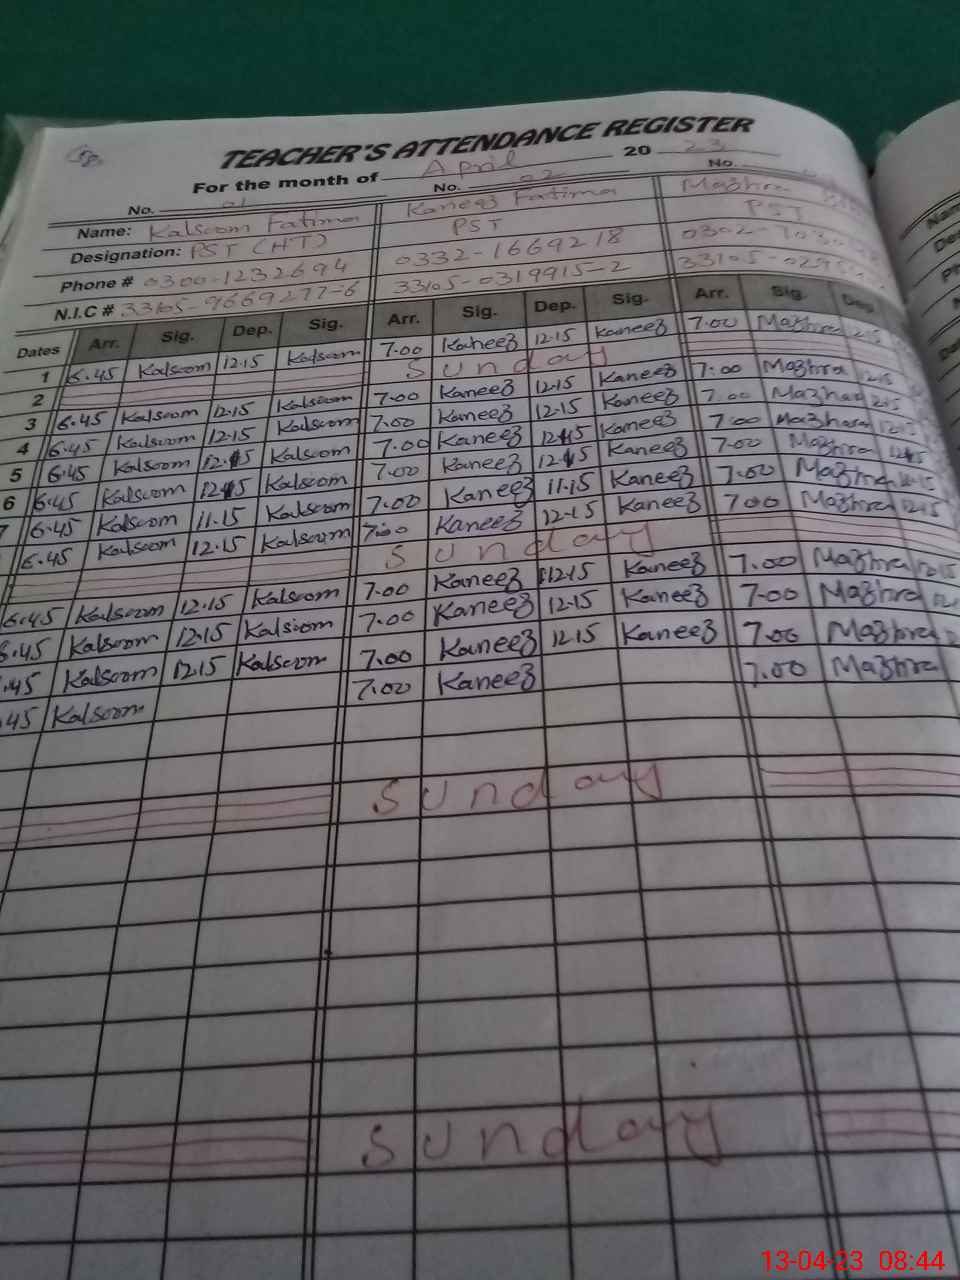 TEACHER'S ATTENDANCE REGISTER
For the month of April 20 23
No. 01 No. 02 No.
Name: Kalsoom Fatima Kaneez Fatima Mazhra
Designation: PST (HT) PST PST
Phone # 0300-1232694 0332-1669218 0302-
N.I.C # 33105-9669277-6 33105-0319915-2 33105-
Dates Arr. Sig. Dep. Sig. Arr. Sig. Dep. Sig. Arr. Sig. Dep.
1 6.45 Kalsoom 12.15 Kalsoom 7.00 Kaneez 12.15 Kaneez 7.00 Mazhra 12.15
2 Sunday
3 6.45 Kalsoom 12.15 Kalsoom 7.00 Kaneez 12.15 Kaneez 7.00 Mazhra 12.15
4 6.45 Kalsoom 12.15 Kalsoom 7.00 Kaneez 12.15 Kaneez 7.00 Mazhra 12.15
5 6.45 Kalsoom 12.15 Kalsoom 7.00 Kaneez 12.15 Kaneez 7.00 Mazhara 12.15
6 6.45 Kalsoom 12.15 Kalsoom 7.00 Kaneez 12.15 Kaneez 7.00 Mazhra 12.15
7 6.45 Kalsoom 11.15 Kalsoom 7.00 Kaneez 11.15 Kaneez 7.00 Mazhra 11.15
6.45 Kalsoom 12.15 Kalsoom 7.00 Kaneez 12.15 Kaneez 7.00 Mazhra 12.15
Sunday
6.45 Kalsoom 12.15 Kalsoom 7.00 Kaneez 12.15 Kaneez 7.00 Mazhra 12.15
6.45 Kalsoom 12.15 Kalsoom 7.00 Kaneez 12.15 Kaneez 7.00 Mazhra
.45 Kalsoom 12.15 Kalsoom 7.00 Kaneez 12.15 Kaneez 7.00 Mazhra
.45 Kalsoom 7.00 Kaneez 7.00 Mazhra
Sunday
Sunday
13-04-23 08:44